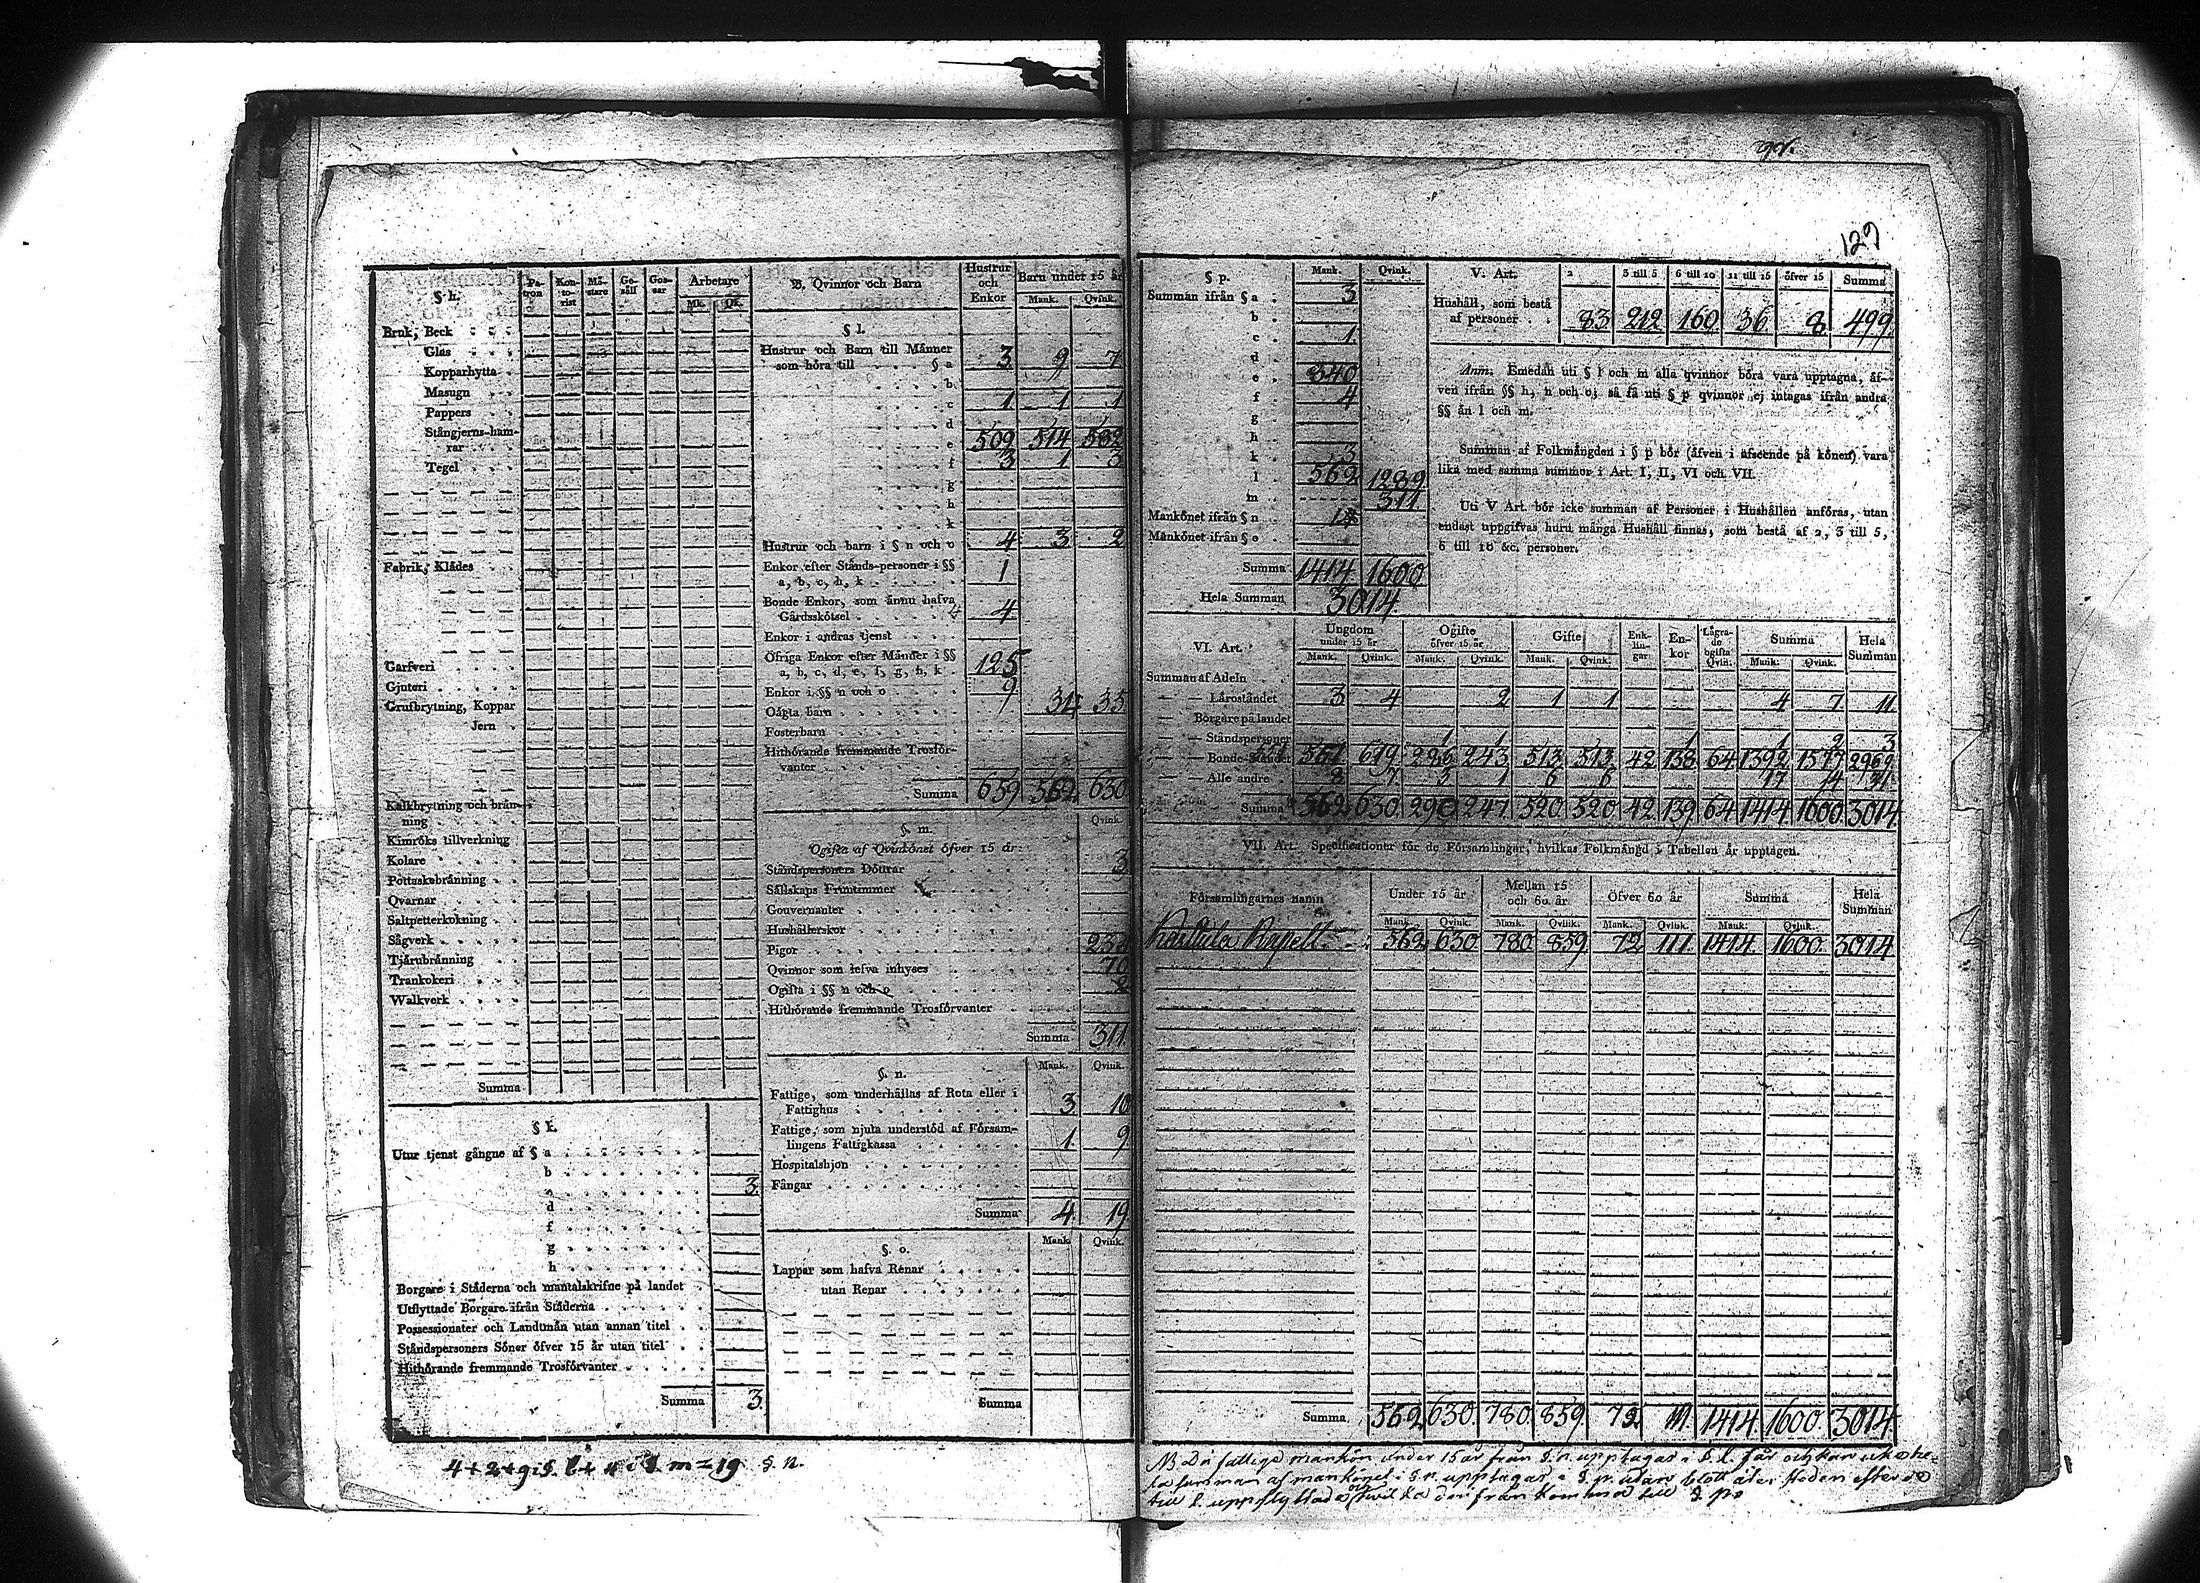 92.
129
§ h. Patron Kontorist Mästare Gesäll Gossar Arbetare Mk. Qk.
Bruk, Beck
Glas
Kopparhytta
Masugn
Pappers
Stångjerns-ham-
rar
Tegel
Fabrik, Klädes
Garfveri
Gjuteri
Grufbrytning, Koppar
Jern
Kalkbrytning och brän-
ning
Kimröks tillverkning
Kolare
Pottaskebränning
Qvarnar
Saltpetterkokning
Sågverk
Tjärubränning
Trankokeri
Walkverk
Summa
§ k.
Utur tjenst gångne af § a
b
c 3.
d
f
g
h
Borgare i Städerna och mantalskrifne på landet
Utflyttade Borgare ifrån Städerna
Possessionater och Landtmän utan annan titel
Ståndspersoners Söner öfver 15 år utan titel
Hithörande fremmande Trosförvanter
Summa 3.
B. Qvinnor och Barn Hustrur och Enkor Barn under 15 år Mank. Qvink.
§ l.
Hustrur och Barn till Männer
som höra till § a 3 9 7
b
c 1 1 1
d
e 509 514 582
f 3 1 3
g
h
k
Hustrur och barn i § n och o 4 3 2
Enkor efter Stånds-personer i §§
a, b, c, h, k 1
Bonde Enkor, som ännu hafva
Gårdsskötsel 4
Enkor i andras tjenst
Öfriga Enkor efter Männer i §§
a, b, c, d, e, f, g, h, k 125
Enkor i §§ n och o 9
Oägta barn 34 35
Fosterbarn
Hithörande fremmande Trosför-
vanter
Summa 659 562 630
§. m. Qvink.
Ogifta af Qvinkönet öfver 15 år:
Ståndspersoners Döttrar 3
Sällskaps Fruntimmer
Gouvernanter
Hushållerskor
Pigor
Qvinnor som lefva inhyses 70
Ogifta i §§ n och o
Hithörande fremmande Trosförvanter
Summa 311.
§. n. Mank. Qvink.
Fattige, som underhållas af Rota eller i
Fattighus 3 10
Fattige, som njuta understöd af Försam-
lingens Fattigkassa 1. 9
Hospitalshjon
Fångar
Summa 4. 19
§. o. Mank. Qvink.
Lappar som hafva Renar
utan Renar
Summa
4+2+9 i §. l + 4 i § m = 19 §. n.
§ p. Mank. Qvink.
Summan ifrån § a 3
b
c 1.
d
e 840
f 4
g
h
k 3
l 562 1289
m 311
Mankönet ifrån § n
Mankönet ifrån § o
Summa 1414 1600
Hela Summan 3014
V. Art. 2 3 till 5 6 till 10 11 till 15 öfver 15 Summa
Hushåll, som bestå
af personer 83 212 160 36 8 499
Anm. Emedan uti § l och m alla qvinnor böra vara upptagna, äf-
ven ifrån §§ h, n och o; så få uti § p qvinnor ej intagas ifrån andra
§§ än l och m.
Summan af Folkmängden i § p bör (äfven i afseende på könen) vara
lika med samma summor i Art. I, II, VI och VII.
Uti V Art. bör icke summan af Personer i Hushållen anföras, utan
endast uppgifvas huru många Hushåll finnas, som bestå af 2, 3 till 5,
6 till 10 &c. personer.
VI. Art. Ungdom under 15 år Ogifte öfver 15 år Gifte Enklingar Enkor Lägrade ogifta Qvin. Summa Hela Summan
Mank. Qvink. Mank. Qvink. Mank. Qvink. Mank. Qvink.
Summan af Adeln
— Läroståndet 3 4 2 1 1 4 7 11
— Borgare på landet
— Ståndspersoner 1 1 1 1 2 3
— Bonde-Ståndet 551 619 286 243 513 513 42 138 64 1392 1577 2969
— Alle andre 8 7 3 1 6 6 17 14 31
Summa 562 630 290 247 520 520 42 139 64 1414 1600 3014
VII. Art. Specificationer för de Församlingar, hvilkas Folkmängd i Tabellen är upptagen.
Församlingarnes namn Under 15 år Mellan 15 och 60 år Öfver 60 år Summa Hela Summan
Mank. Qvink. Mank. Qvink. Mank. Qvink. Mank. Qvink.
Karttula Kapell 562 630 780 859 72 111 1414 1600 3014
Summa 562 630 780 859 72 111 1414 1600 3014
NB Då fattige mankön under 15 år från §. n. upptagas i §. l. får och kan icke he-
la summan af mankönet i §. n. upptagas i §. p. utan blott
till från komma till §. p.